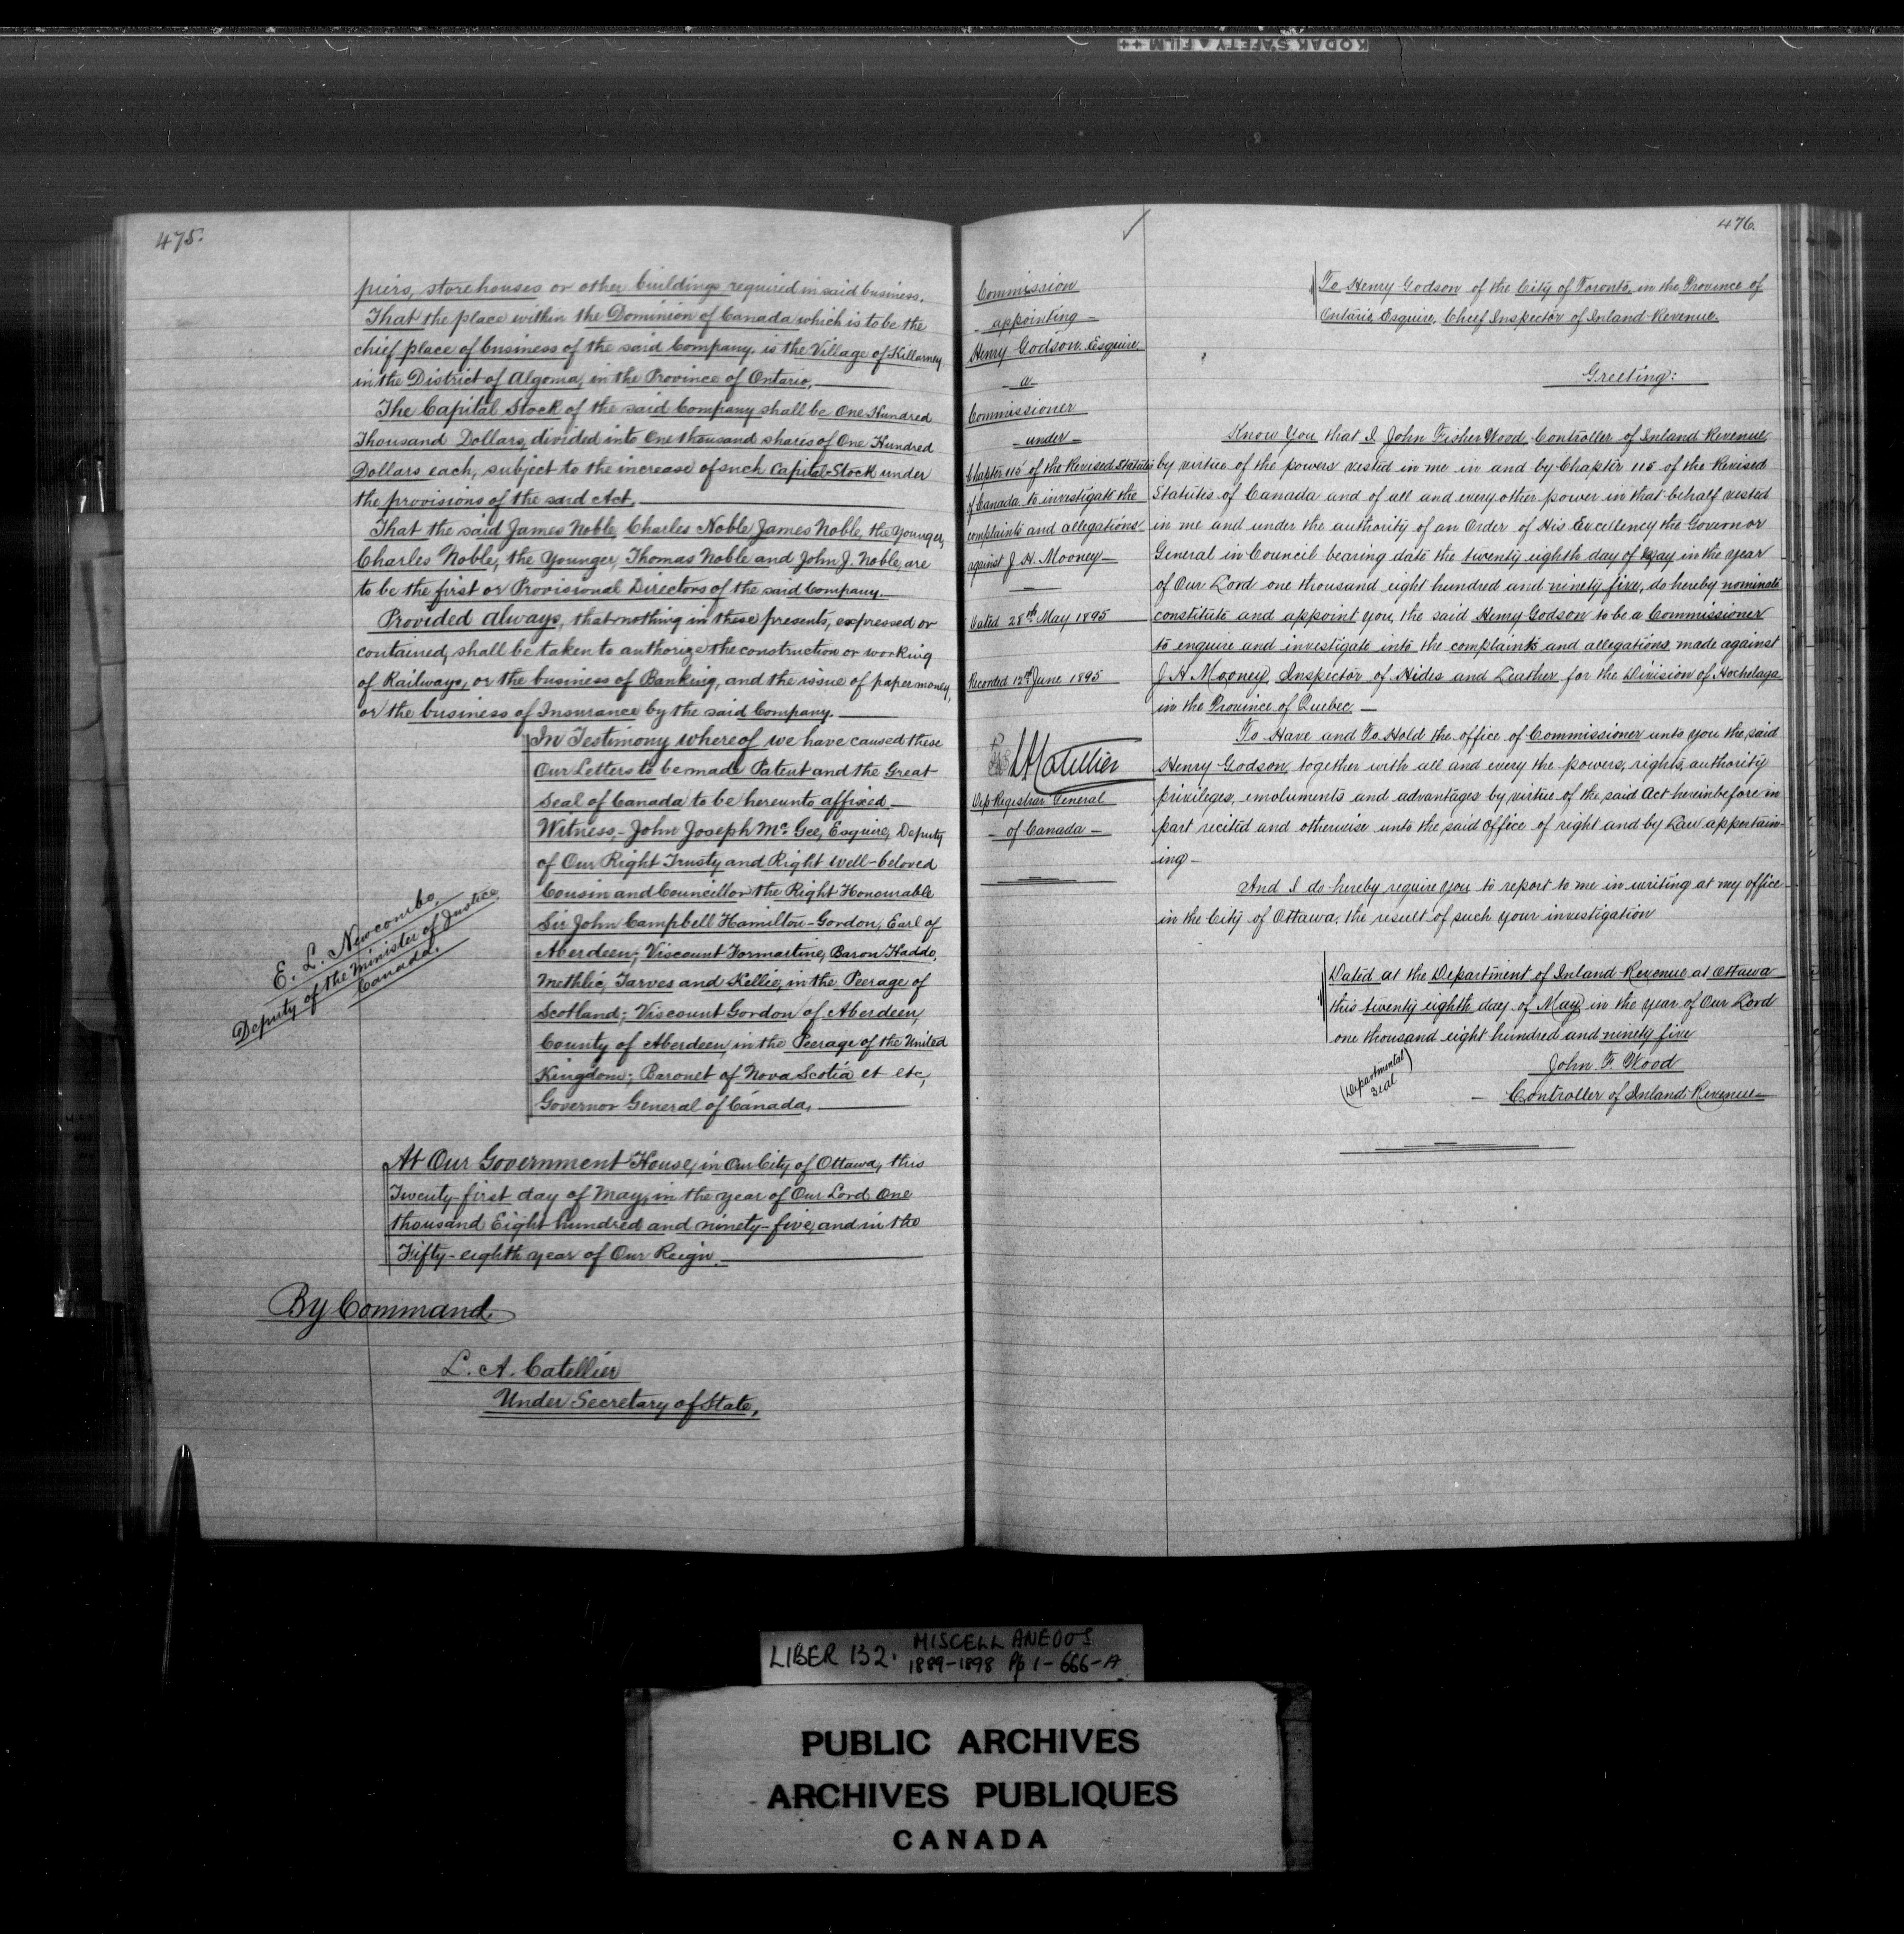 KODAK SAFETY FILM
475.
piers, storehouses or other buildings required in said business.
That the place within the Dominion of Canada which is to be the
chief place of business of the said Company, is the Village of Killarney
in the District of Algoma, in the Province of Ontario,
The Capital Stock of the said Company shall be One Hundred
Thousand Dollars, divided into One thousand shares of One Hundred
Dollars each, subject to the increase of such Capital Stock under
the provisions of the said Act,
That the said James Noble, Charles Noble, James Noble, the Younger,
Charles Noble, the Younger, Thomas Noble and John J. Noble, are
to be the first or Provisional Directors of the said Company.
Provided Always, that nothing in these presents, expressed or
contained, shall be taken to authorize the construction or working
of Railways, or the business of Banking, and the issue of paper money,
or the business of Insurance by the said Company.
In Testimony whereof we have caused these
Our Letters to be made Patent and the Great
Seal of Canada to be hereunto affixed
Witness, John Joseph Mc. Gee, Esquire, Deputy
of Our Right Trusty and Right well-beloved
Cousin and Councillor the Right Honourable
Sir John Campbell Hamilton-Gordon, Earl of
Aberdeen; Viscount Formartine, Baron Haddo,
Methlic, Tarves and Kellie, in the Peerage of
Scotland; Viscount Gordon of Aberdeen,
County of Aberdeen, in the Peerage of the United
Kingdom; Baronet of Nova Scotia et etc,
Governor General of Canada,
E. L. Newcombe,
Deputy of the Minister of Justice
Canada.
At Our Government House, in Our City of Ottawa, this
Twenty-first day of May, in the year of Our Lord One
thousand Eight hundred and ninety-five, and in the
Fifty-eighth year of Our Reign.
By Command,
L. A. Catellier
Under Secretary of State,
476.
Commission
appointing
Henry Godson. Esquire.
a
Commissioner
under
Chapter 115 of the Revised Statutes
of Canada to investigate the
complaints and allegations
against J. H. Mooney
Dated 28th May 1895
Recorded 12th June 1895
LA Catellier
Dep Registrar General
of Canada
To Henry Godson of the City of Toronto, in the Province of
Ontario Esquire, Chief Inspector of Inland Revenue.
Greeting:
Know You that I John Fisher Wood Controller of Inland Revenue
by virtue of the powers vested in me in and by Chapter 115 of the Revised
Statutes of Canada and of all and every other power in that behalf vested
in me and under the authority of an Order of His Excellency the Governor
General in Council bearing date the twenty eighth day of May in the year
of Our Lord one thousand eight hundred and ninety five, do hereby nominate
constitute and appoint you, the said Henry Godson to be a Commissioner
to enquire and investigate into the complaints and allegations made against
J H Mooney, Inspector of Hides and Leather for the Division of Hochelaga
in the Province of Quebec
To Have and To Hold the office of Commissioner unto you the said
Henry Godson, together with all and every the powers, rights, authority
privileges, emoluments and advantages by virtue of the said Act hereinbefore in
part recited and otherwise unto the said Office of right and by Law appertain-
ing
And I do hereby require you to report to me in writing at my office
in the City of Ottawa, the result of such your investigation
Dated at the Department of Inland Revenue at Ottawa
this twenty eighth day of May in the year of Our Lord
one thousand eight hundred and ninety five
John F. Wood
Controller of Inland Revenue
(Departmental
Seal)
LIBER 132. MISCELLANEOUS
1889-1898 Pp 1-666-A
PUBLIC ARCHIVES
ARCHIVES PUBLIQUES
CANADA